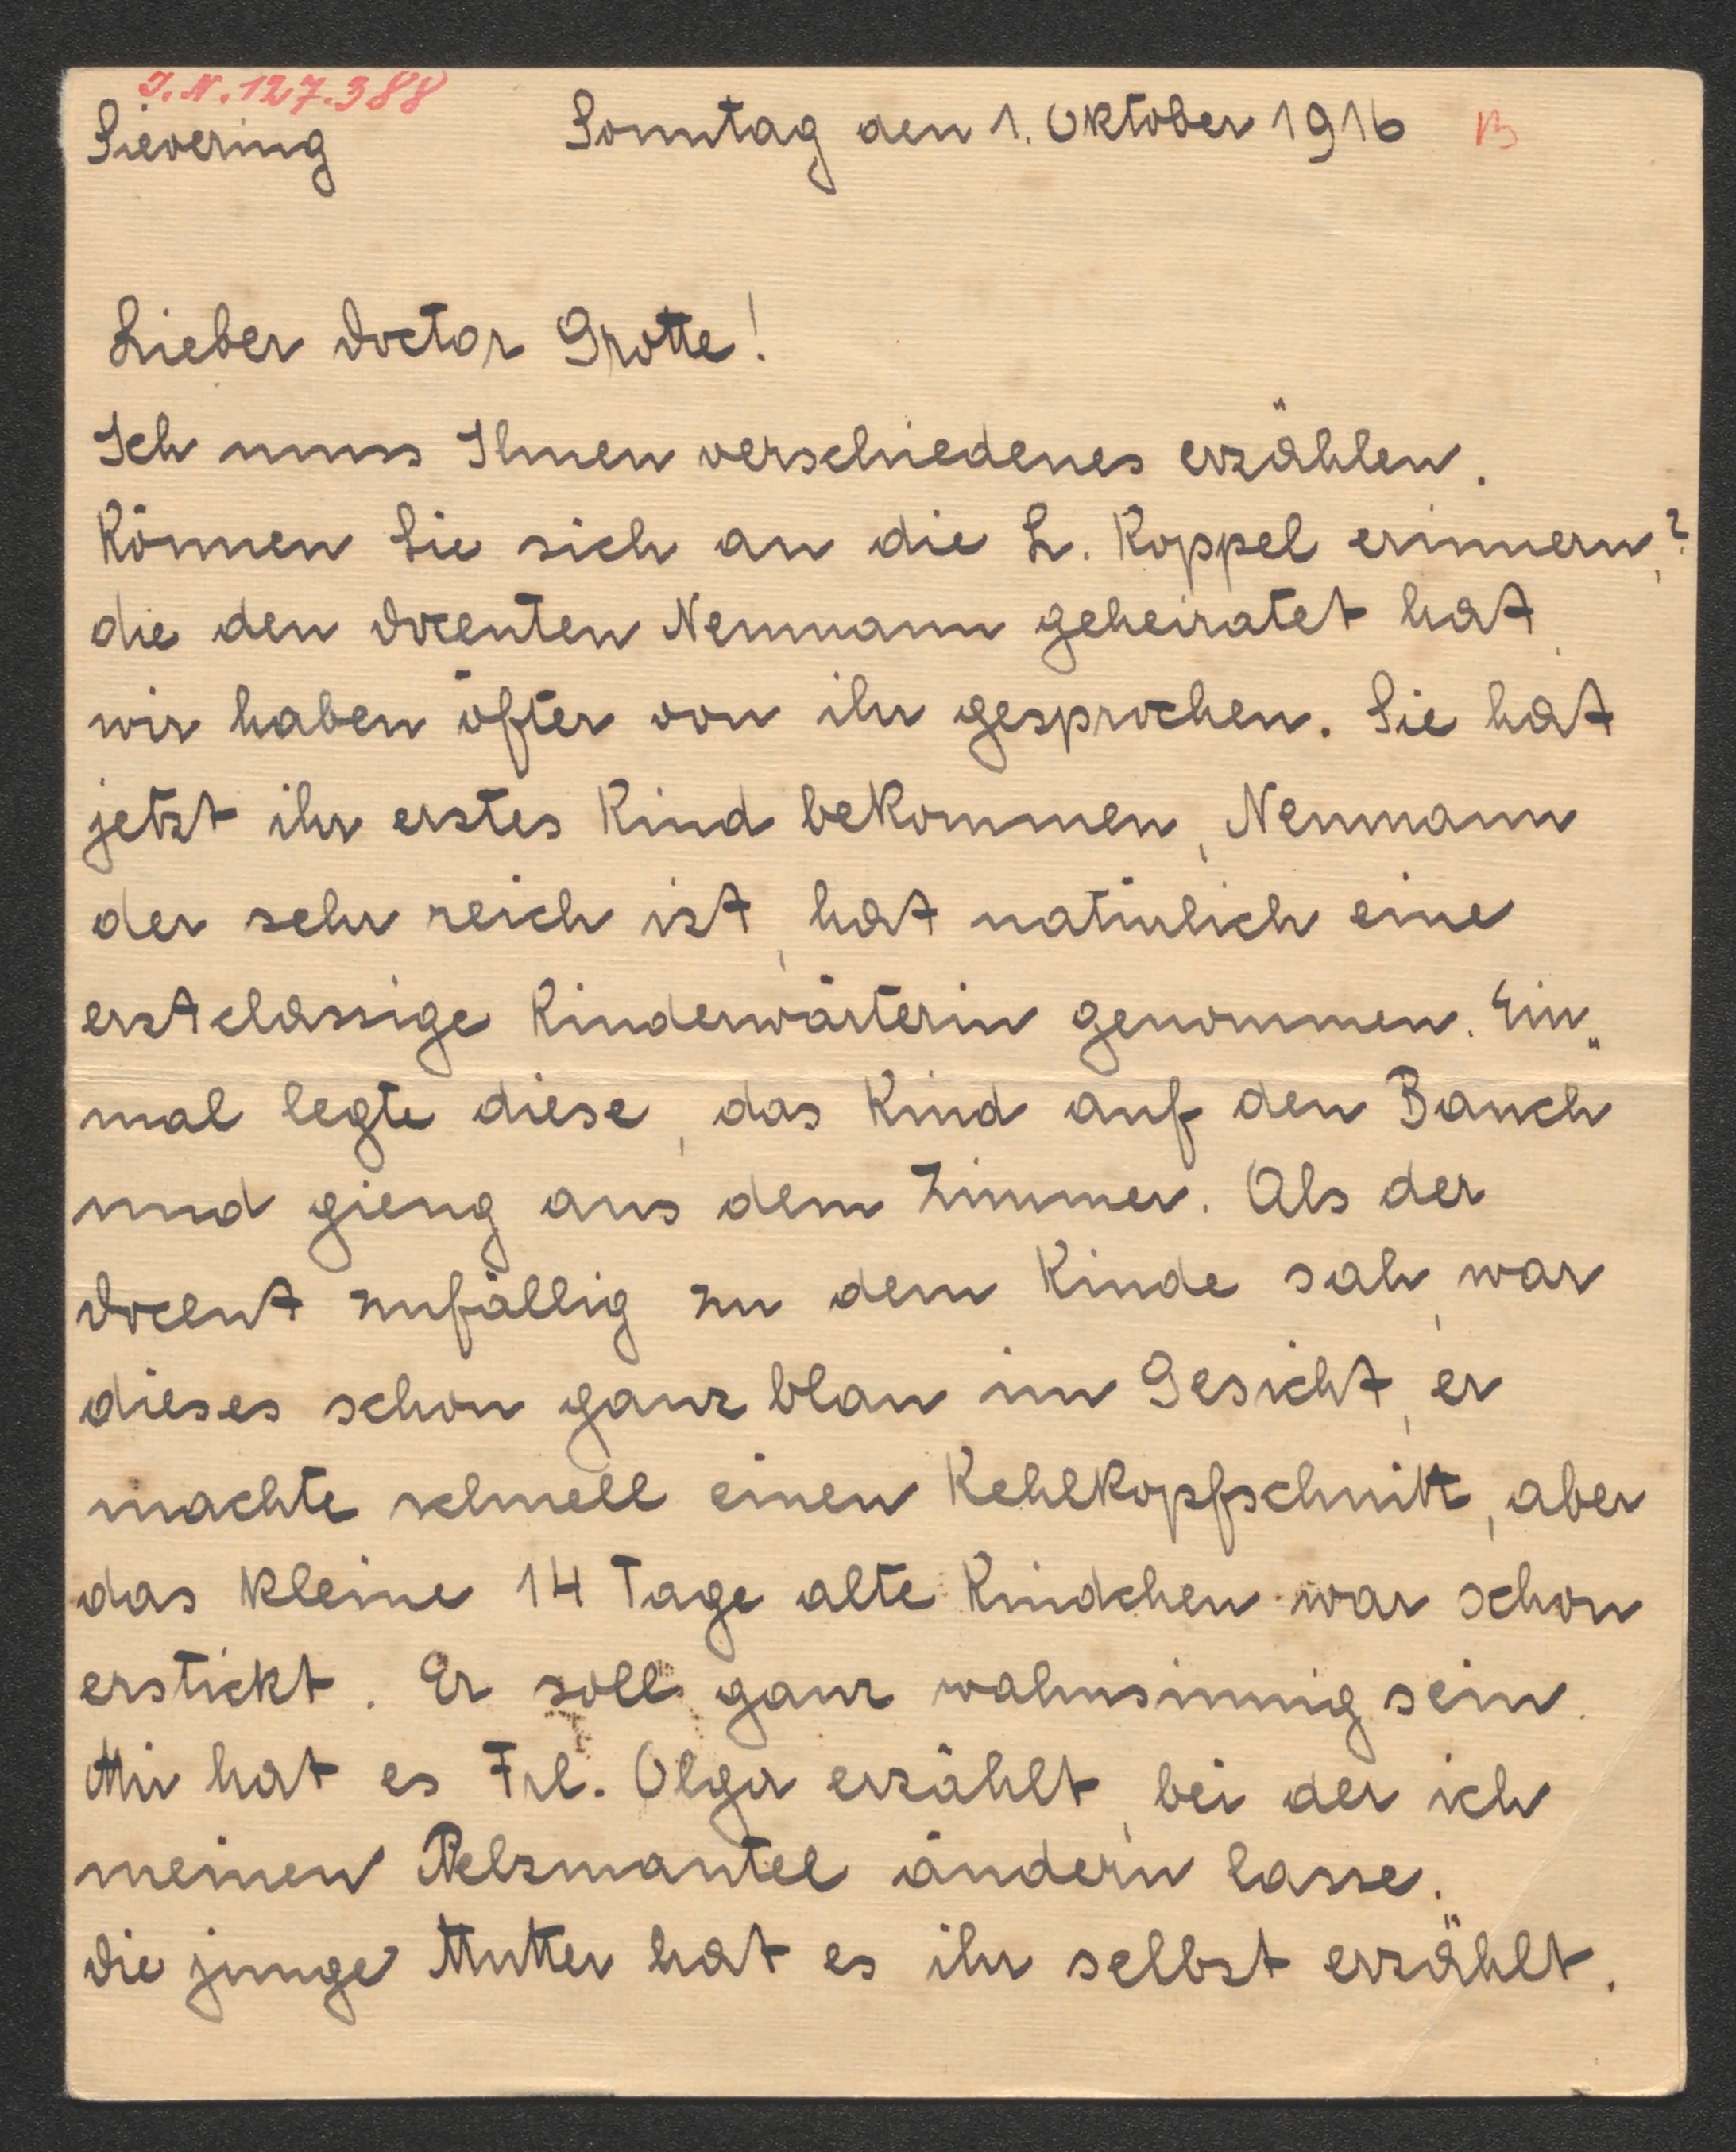 J.N. 127.388
Sievering Sonntag den 1. Oktober 1916 B
Lieber Doctor Grotte!
Ich muss Ihnen verschiedenes erzählen.
Können Sie sich an die L. Koppel erinnern,?
die den Docenten Neumann geheiratet hat,
wir haben öfter von ihr gesprochen. Sie hat
jetzt ihr erstes Kind bekommen, Neumann
der sehr reich ist, hat natürlich eine
erstclassige Kinderwärterin genommen. Ein„
mal legte diese, das Kind auf den Bauch
und gieng aus dem Zimmer. Als der
Docent zufällig zu dem Kinde sah, war
dieses schon ganz blau im Gesicht, er
machte schnell einen Kehlkopfschnitt, aber
das kleine 14 Tage alte Kindchen war schon
erstickt. Er soll ganz wahnsinnig sein.
Mir hat es Frl. Olga erzählt, bei der ich
meinen Pelzmantel ändern lasse.
Die junge Mutter hat es ihr selbst erzählt.